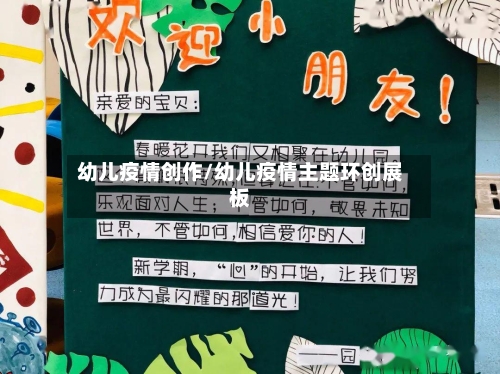 欢迎小
朋友!
亲爱的宝贝:
春暖花开我们又相聚在幼儿园
幼儿疫情创作/幼儿疫情主题环创展
板
乐观面对人生;不管如何,敬畏未知
世界,不管如何,相信爱你的人!
新学期,“心”的开始,让我们努
力成为最闪耀的那道光!
——园